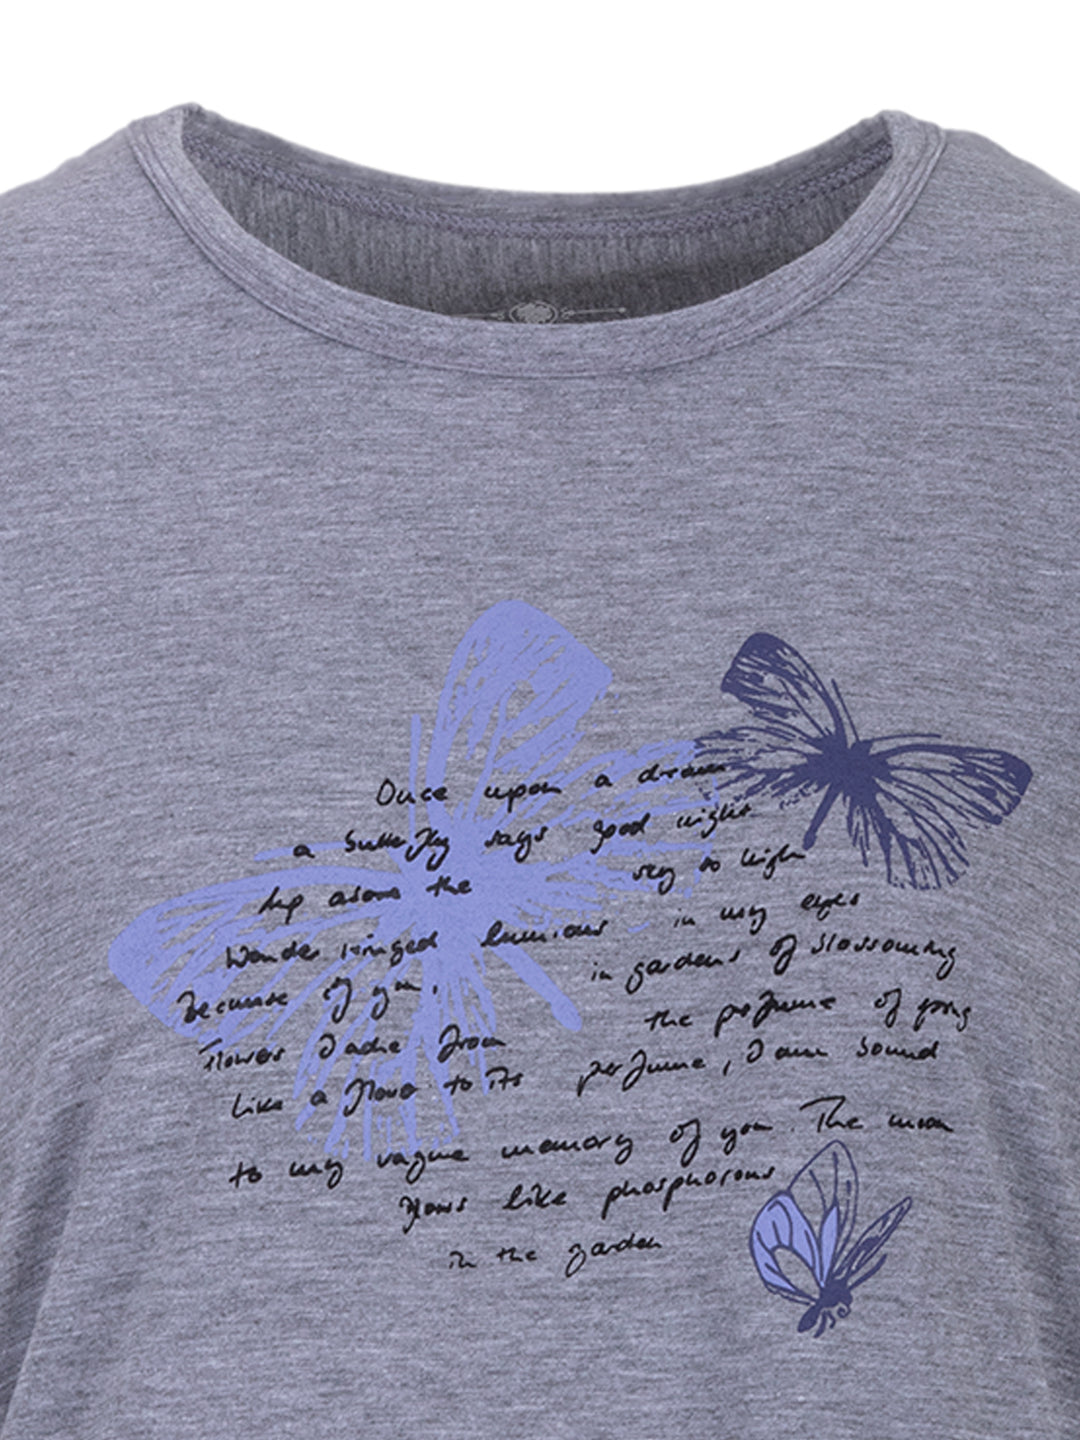 Once upon a dream
a butterfly says good night
up above the sky so high
Wonder winged luminous in my eyes
Because of you, in gardens of blossoming
Flowers I ache from the perfume of
Like a flower to its perfume, I am bound
to my vague memory of you. The moon
glows like phosphorous
in the garden